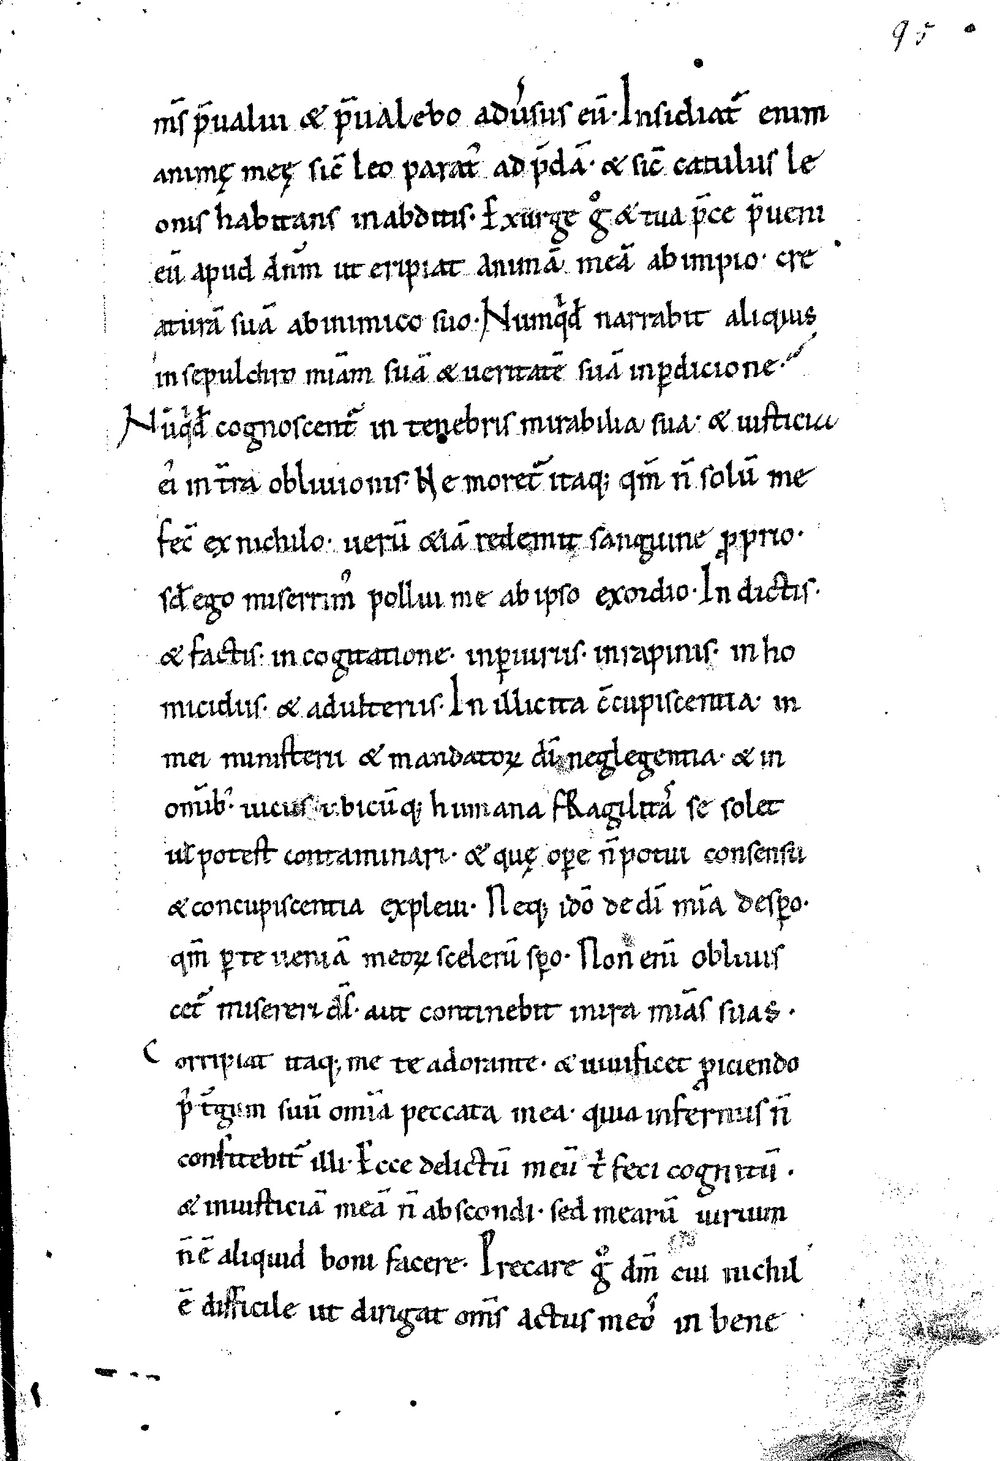 95
m̄s p̄ualui & p̄ualebo adu̓sus eū· Insidiat᷑ enim
animę meę sic̄ leo parat᷑ ad p̄dā· & sic̄ catulus le
onis habitans in abditis· Exurge gͦ & tua p̄ce p̄ueni
eū apud dn̄m ut eripiat animā meā ab impio· cre
aturā suā ab inimico suo· Numqͥd narrabit aliquis
in sepulchro mīam suā & ueritatē suā in ꝑdicione·
Nūqͥd cognoscent᷑ in tenebris mirabilia sua· & iusticia
ei᾽ in t̄ra obliuionis· Ne moret᷑ itaq; qm̄ n̄ solū me
fec̄ ex nichilo· uerū &iā redemit sanguine ꝓprio·
sꝫ ego miserrim᾽ pollui me ab ipso exordio· In dictis·
& factis· in cogitatione· in ꝑiuriis· in rapinis· in ho
micidiis· & adulteriis· In illicita c̄cupiscentia· in
mei ministerii & mandatoꝝ dī neglegentia· & in
omīb᾽· uiciis ubicūq; humana fragilitas se solet
uł potest contaminari· & quę oꝑe n̄ potui consensu
& concupiscentia expleui· Neq; idō de dī mīa despo·
qm̄ ꝑ te ueniā meoꝝ scelerū spo· Non enī obliuis
cet᷑ misereri ds̄· aut continebit in ira mīas suas·
Corripiat itaq; me te adorante· & uiuificet ꝓiciendo
p᾽ t̄gum suū omīa peccata mea· quia infernus n̄
confitebit᷑ illi· Ecce delictū meū tͥ feci cognitū·
& iniusticiā meā n̄ abscondi· sed mearū uirium
n̄ ē aliquid boni facere· Precare gͦ dm̄ cui nichil
ē difficile ut dirigat oms̄ actus meo᾽ in bene